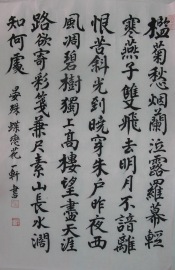 檻菊愁烟蘭泣露羅幕輕
寒燕子雙飛去明月不諳離
恨苦斜光到曉穿朱戶昨夜西
風凋碧樹獨上高樓望盡天涯
路欲寄彩箋兼尺素山長水闊
知何處 晏殊 蝶戀花 軒書